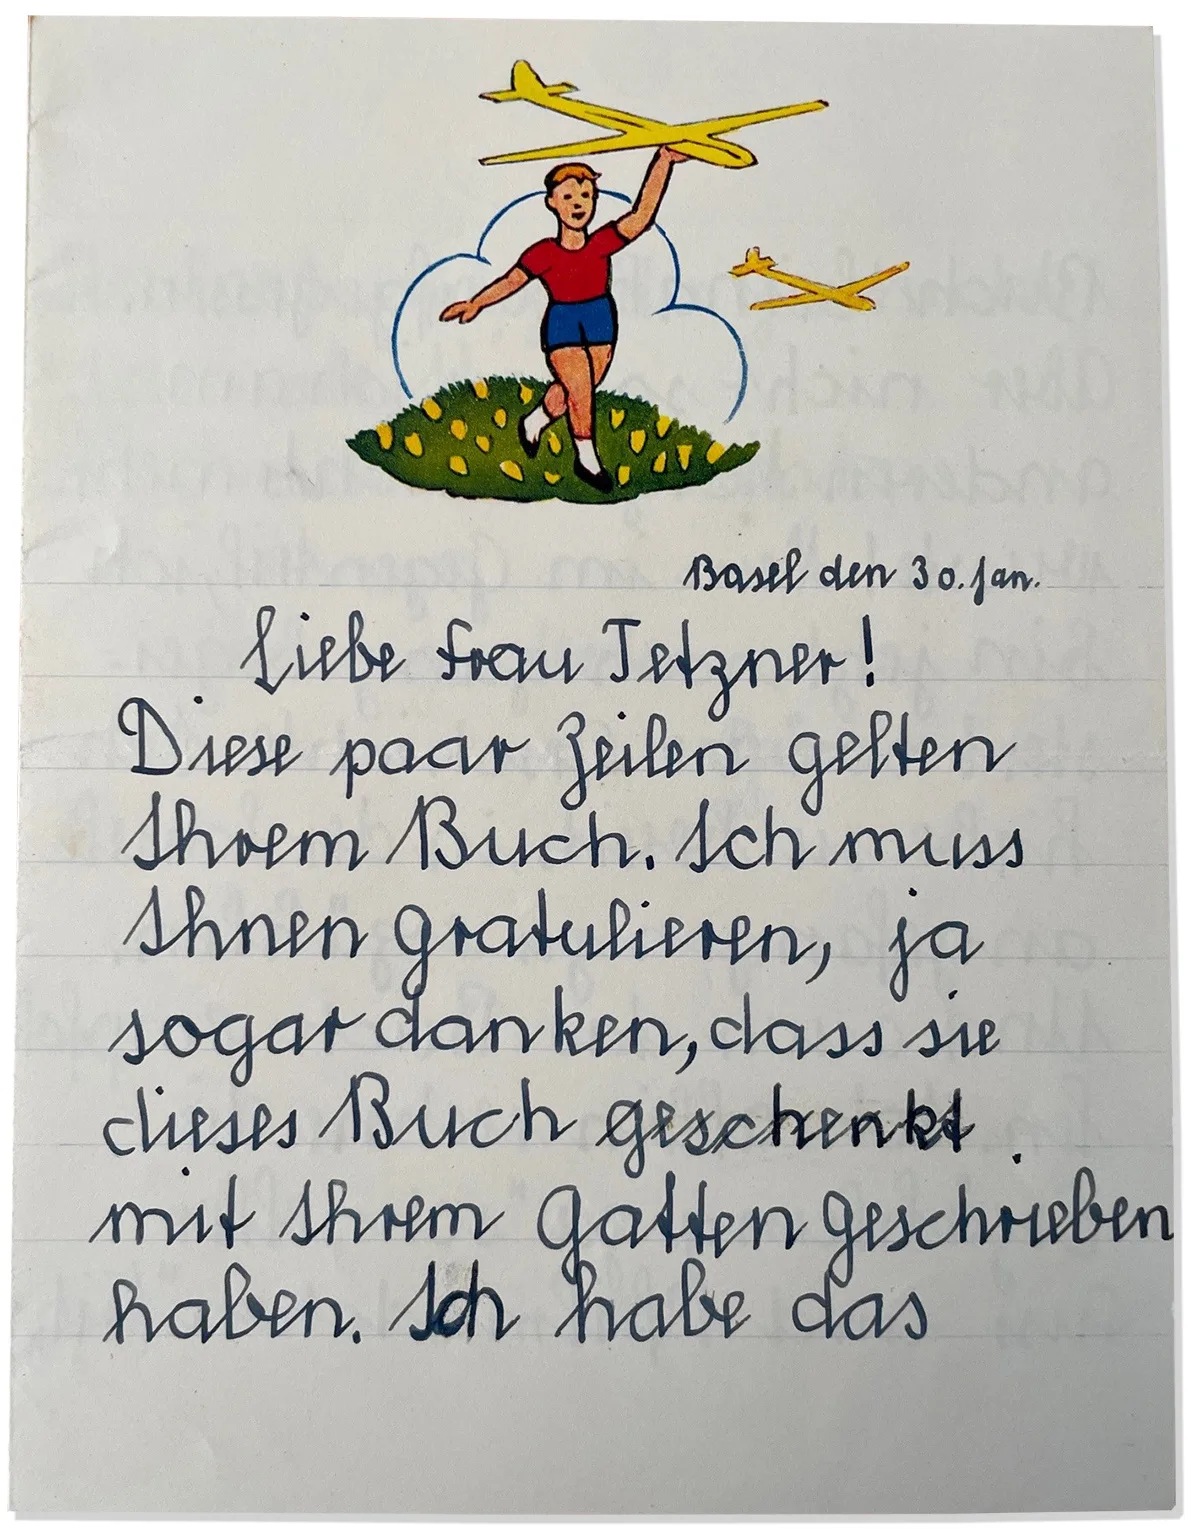 Basel den 30. Jan.
Liebe Frau Tetzner!
Diese paar Zeilen gelten
Ihrem Buch. Ich muss
Ihnen gratulieren, ja
sogar danken, dass sie
dieses Buch geschenkt
mit Ihrem Gatten geschrieben
haben. Ich habe das